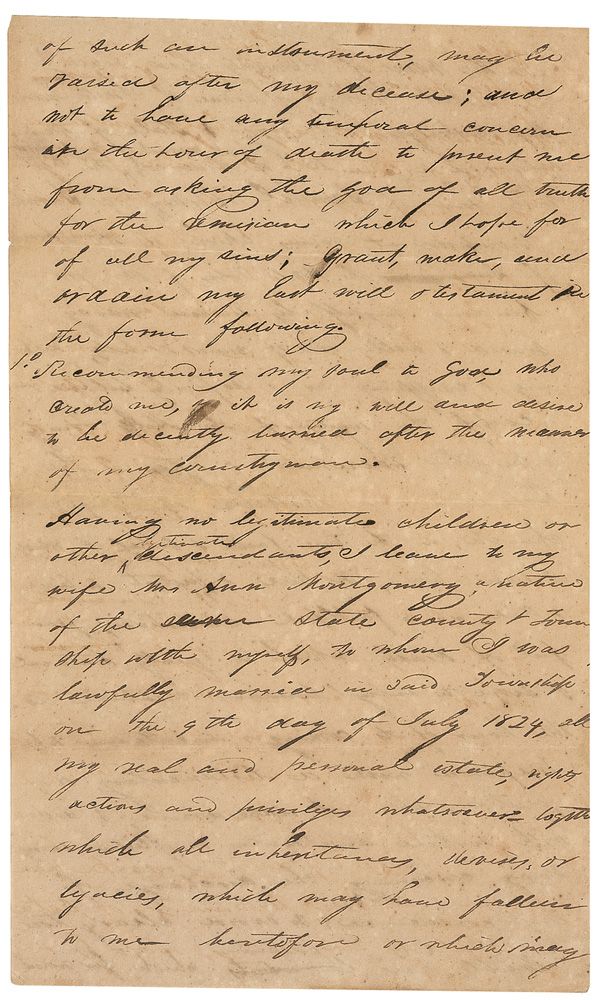 of such an instrument, may be
raised after my decease; and
not to have any temporal concern
in the hour of death to prevent me
from asking the God of all truth
for the remission which I hope for
of all my sins; Grant, make, and
ordain my last will & testament in
the form following.
1.o Recommending my soul to God, who
created me, it is my will and desire
to be decently burried after the manner
of my countrymen.
Having no legitimate children or
other legitimate descendants, I leave to my
wife Mrs Ann Montgomery, a native
of the same State County & Town
ship with myself, to whom I was
lawfully married in said Township
on the 9th day of July 1824, all
my real and personal estate, rights
actions and priviliges whatsoever togeth
which all inheritances, devises, or
legacies, which may have fallen
to me heretofore or which may